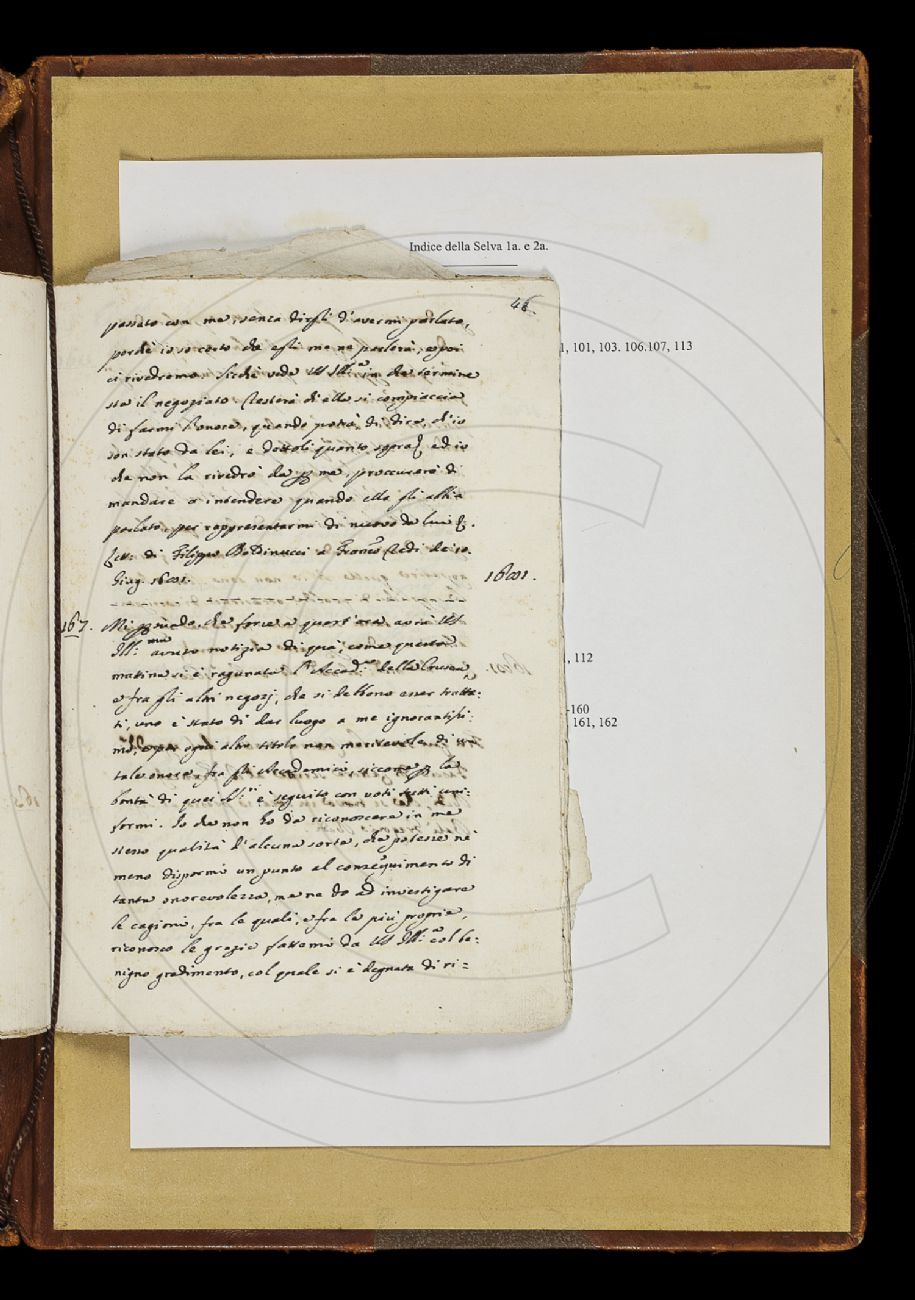 Indice della Selva 1a. e 2a.
1, 101, 103. 106.107, 113
, 112
-160
161, 162
48.
passato con me, senza dirgli d'avermi parlato,
perchè io so certo che egli me ne parlerà, e poi
ci rivedremo. Sicchè vede VS Ill.ma in che termine
sta il negoziato. Resterà ch'ella si compiaccia
di farmi l'onore, quando potrà, di dire, ch'io
son stato da lei, e dettoli quanto sopra ed io
che non la rivedrò da me, proccurerò di
mandare a intendere quando ella gli abbia
parlato, per rappresentarmi di nuovo da lui
Lett. di Filippo Baldinucci a Franc.o Redi de' 10.
Giug. 1681.
1681.
167. Mi credo, che forse a quest'ora avrà VS
Ill.ma avuto notizia di qua, come questa
mattina si è ragunata l'Accad.a della Crusca,
e fra gli altri negozj, che si debbono esser tratta:
ti, uno è stato di dar luogo a me ignorantissi:
mo, e per ogni altro titolo non meritevole di
tale onore, fra gli Accademici, siccome la
bontà di quei SS.ri è seguito con voti tutti uni:
formi. Io che non ho da riconoscere in me
stesso qualità d'alcuna sorta, che potesse nè
meno dispormi un punto al conseguimento di
tanta onorevolezza, me ne do ad investigare
le cagioni, fra le quali, e fra le più proprie,
riconosco le grazie fattemi da VS Ill.ma col be:
nigno gradimento, col quale si è degnata di ri=